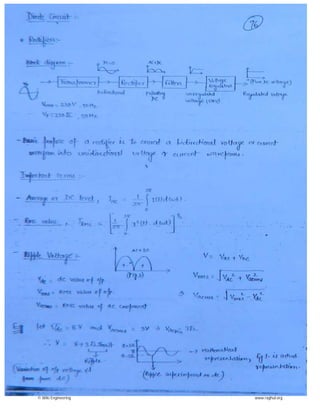 Diode Circuit :-
76
* Rectifier:-
Block diagram :-
Transformer
Rectifier
Filter
Voltage Regulator
(Pure DC voltage)
bidirectional
Pulsating DC
unregulated voltage
Regulated voltage
Vrms = 230V, 50Hz
Vp = 230√2, 50Hz
- Basic purpose of a rectifier is to convert a bidirectional voltage or current
waveform into unidirectional voltage or current waveforms.
Important terms :-
- Average or DC level, Idc = 1/2π ∫ I(t) d(ωt).
- Rms value, Irms = [ 1/2π ∫ I²(t) d(ωt) ]^½
- Ripple Voltage :-
AC + DC
(fig.)
V = Vdc + Vac
Vdc = dc value of o/p.
Vrms = rms value of o/p.
Vacrms = rms value of AC component
Vrms = √Vdc² + Vacrms²
⇒ Vacrms = √Vrms² - Vdc²
Eg let Vdc = 8V and
∴ V = 8 +
Ripple
→ mathematical
representation, fig. is actual
representation.
(Variation of o/p voltage
from pure dc)
(Ripple superimposed on dc)
© Wiki Engineering
www.raghul.org